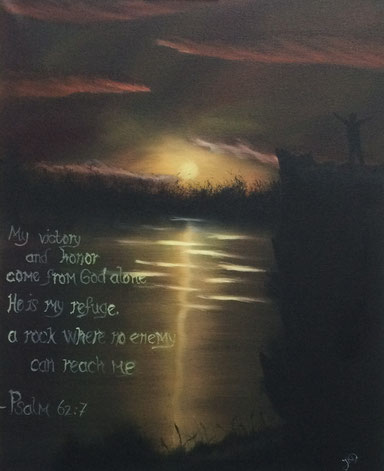 My victory
and honor
come from God alone
He is my refuge.
a rock where no enemy
can reach me
- Psalm 62:7